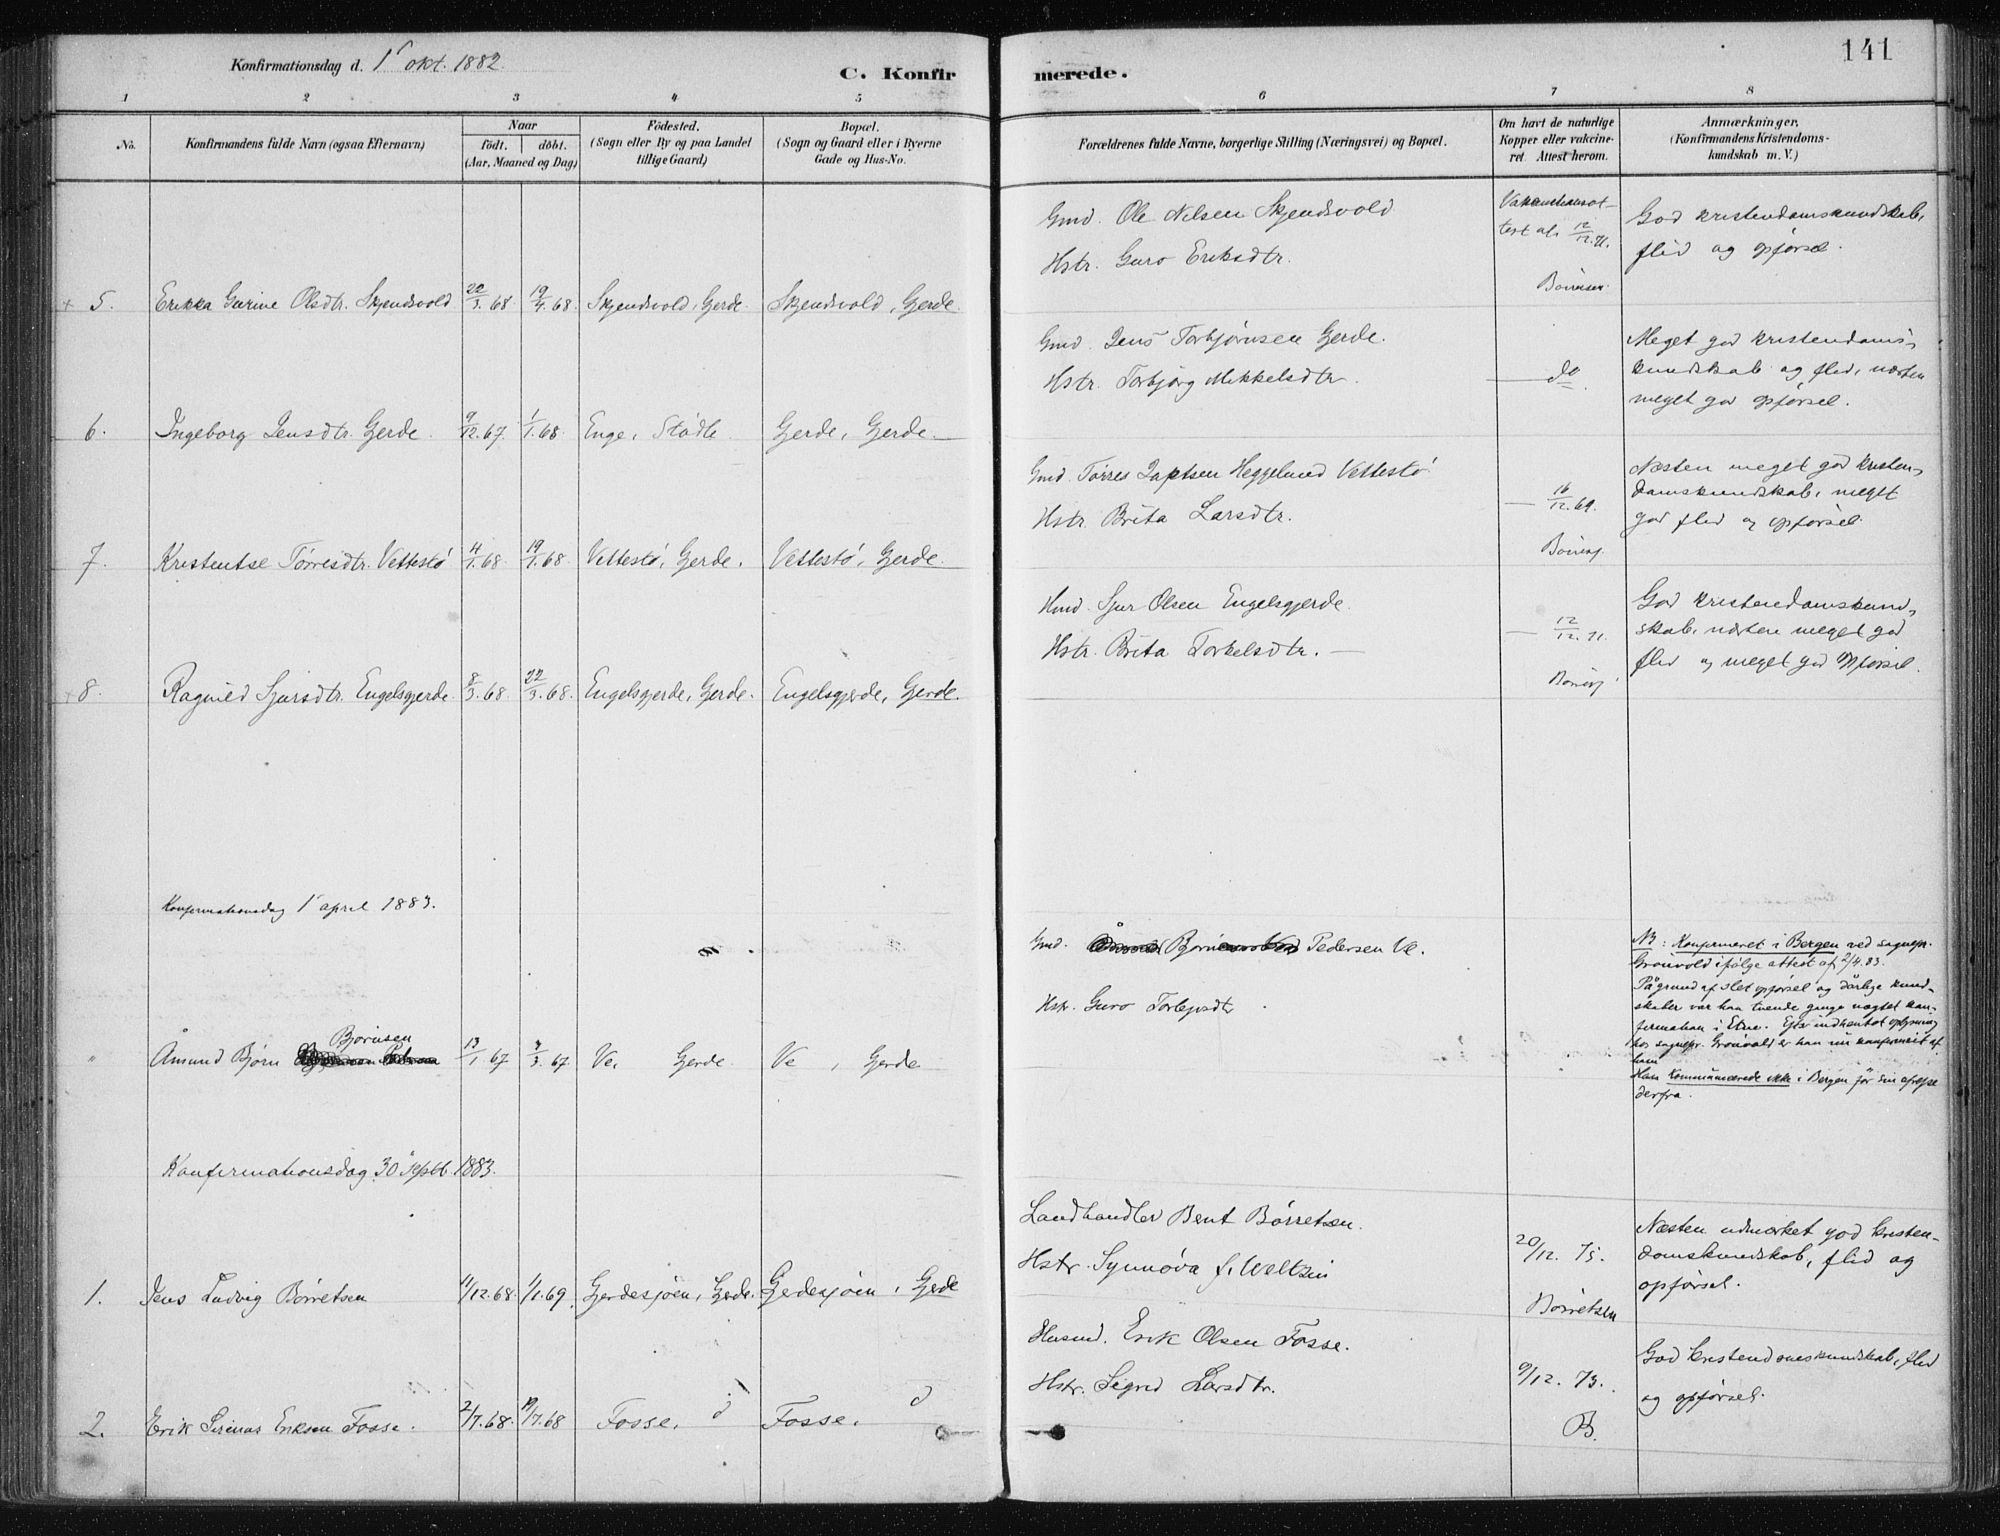 141
Konfirmationsdag d. 1ᵉ okt. 1882.
C. Konfirmerede.
1 2 3 4 5 6 7 8
No.
Konfirmandens fulde Navn (ogsaa Efternavn)
Naar
födt. döbt.
(Aar, Maaned og Dag)
Födested.
(Sogn eller By og paa Landet
tillige Gaard)
Bopæl.
(Sogn og Gaard eller i Byerne
Gade og Hus-No.
Forældrenes fulde Navne, borgerlige Stilling (Næringsvei) og Bopæl.
Om havt de naturlige
Kopper eller vakcine-
ret. Attest herom.
Anmærkninger.
(Konfirmandens Kristendoms-
kundskab m. V.)
Gmd. Ole Nilsen Skjendsvold
Hstr. Guro Eriksdtr.
+ 5. Erikka Gurine Olsdtr. Skjendsvold 22/3.68. 19/4.68. Skjendsvold, Gerde. Skjendsvold, Gerde.
af 12/12.71.
God kristendomskundskab,
flid og opførsel.
Gmd. Jens Torbjørnsen Gerde.
Hstr. Torbjørg Mikkelsdtr.
6. Ingeborg Jensdtr. Gerde. 9/12.67. 1/1.68. Enge, Stødle. Gerde, Gerde.
— do
Meget god kristendoms-
kundskab og flid, næsten
meget god opførsel.
Gmd. Tørres Heggelund Vettestø
Hstr. Brita Larsdtr.
7. Kristentse Tørresdtr. Vettestø 4/1.68. 19/1.68. Vettestø, Gerde. Vettestø, Gerde.
— 16/12.69.
Næsten meget god kristen-
domskundskab, meget
god flid og opførsel.
Hmd. Sjur Olsen Engelsgjerde.
Hstr. Brita Torkelsdtr. —
+ 8. Ragnild Sjursdtr. Engelsgjerde. 8/3.68. 22/3.68. Engelsgjerde, Gerde. Engelsgjerde, Gerde.
— 12/12.71.
God kristendomskund-
skab, næsten meget god
flid og meget god opførsel.
Konfirmationsdag 1ᵉ april 1883.
Gmd. Bjørn Pedersen Ve.
Hstr. Guro
" Åmund Bjørn Bjørnsen 13/1.67 3/3.67 Ve, Gerde. Ve, Gerde
NB: Konfirmeret i Bergen ved sognepr.
Grønvold ifølge attest af 2/4.83.
På grund af slet opførsel og dårlige kund-
skaber var han tvende gange nægtet kon-
firmation i Etne. Efter indhentet oplysning
hos sognepr. Grønvold er han nu konfirmeret af
ham
Han kommunicerede ikke i Bergen før sin afrejse
derfra.
Konfirmationsdag 30 septb. 1883.
Landhandler Bent Børretsen.
Hstr. Synnøva f. Weltzin
1. Jens Ludvig Børretsen 11/12.68. 1/1.69. Gerdesjøen, Gerde. Gerdesjøen, Gerde
20/12. 75.
Børretsen
Næsten udmærket god kristen-
domskundskab, flid og
opførsel.
Husmd. Erik Olsen Fosse.
Hstr. Sigrid Larsdtr.
2. Erik Eriksen Fosse. 2/7.68. 19/7.68 Fosse, d Fosse, d
9/12. 73.
B.
God kristendomskundskab, flid
og opførsel.